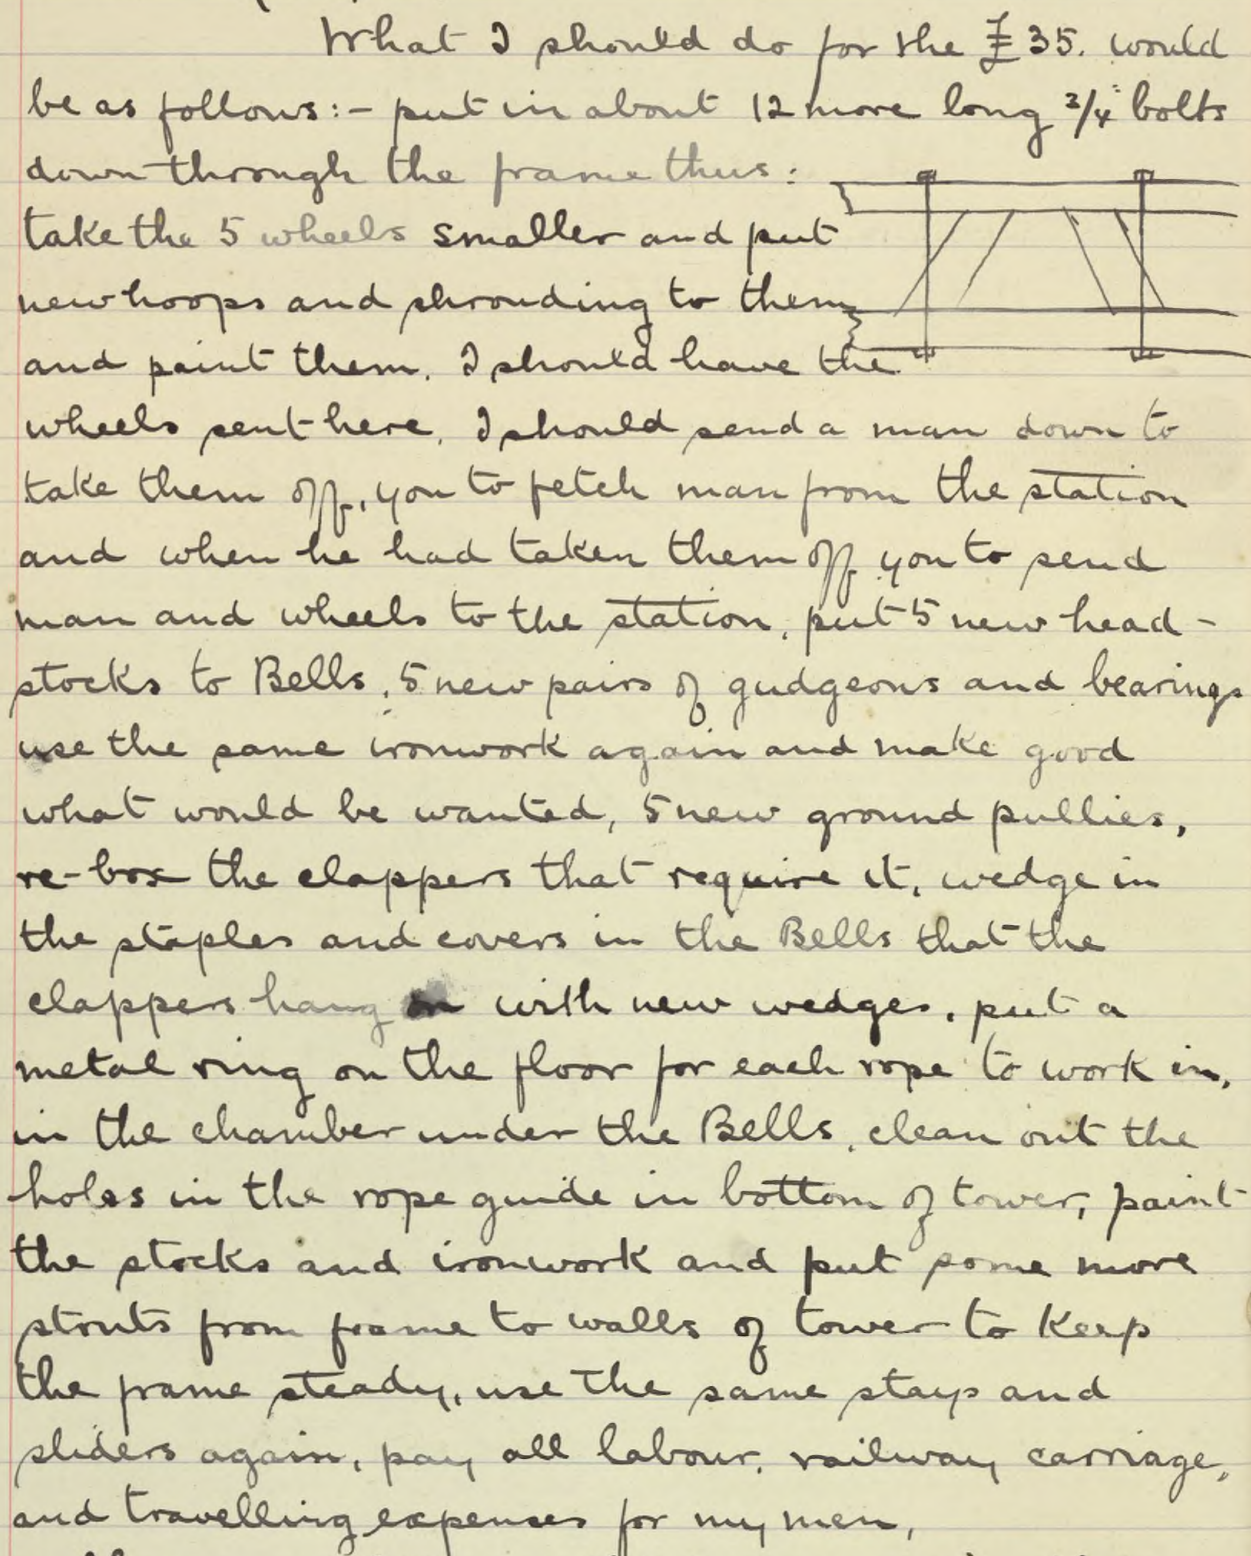 What I should do for the £35. would
be as follows:- put in about 12 more long 3/4" bolts
down through the frame thus:
take the 5 wheels smaller and put
new hoops and shrouding to them
and paint them. I should have the
wheels sent here. I should send a man down to
take them off, you to fetch man from the station
and when he had taken them off you to send
man and wheels to the station, put 5 new head-
stocks to Bells, 5 new pairs of gudgeons and bearings
use the same ironwork again and make good
what would be wanted, 5 new ground pullies,
re-box the clappers that require it, wedge in
the staples and covers in the Bells that the
clappers hang on with new wedges, put a
metal ring on the floor for each rope to work in,
in the chamber under the Bells, clean out the
holes in the rope guide in bottom of tower, paint
the stocks and ironwork and put some more
struts from frame to walls of tower to keep
the frame steady, use the same stays and
sliders again, pay all labour, railway carriage,
and travelling expenses for my men,